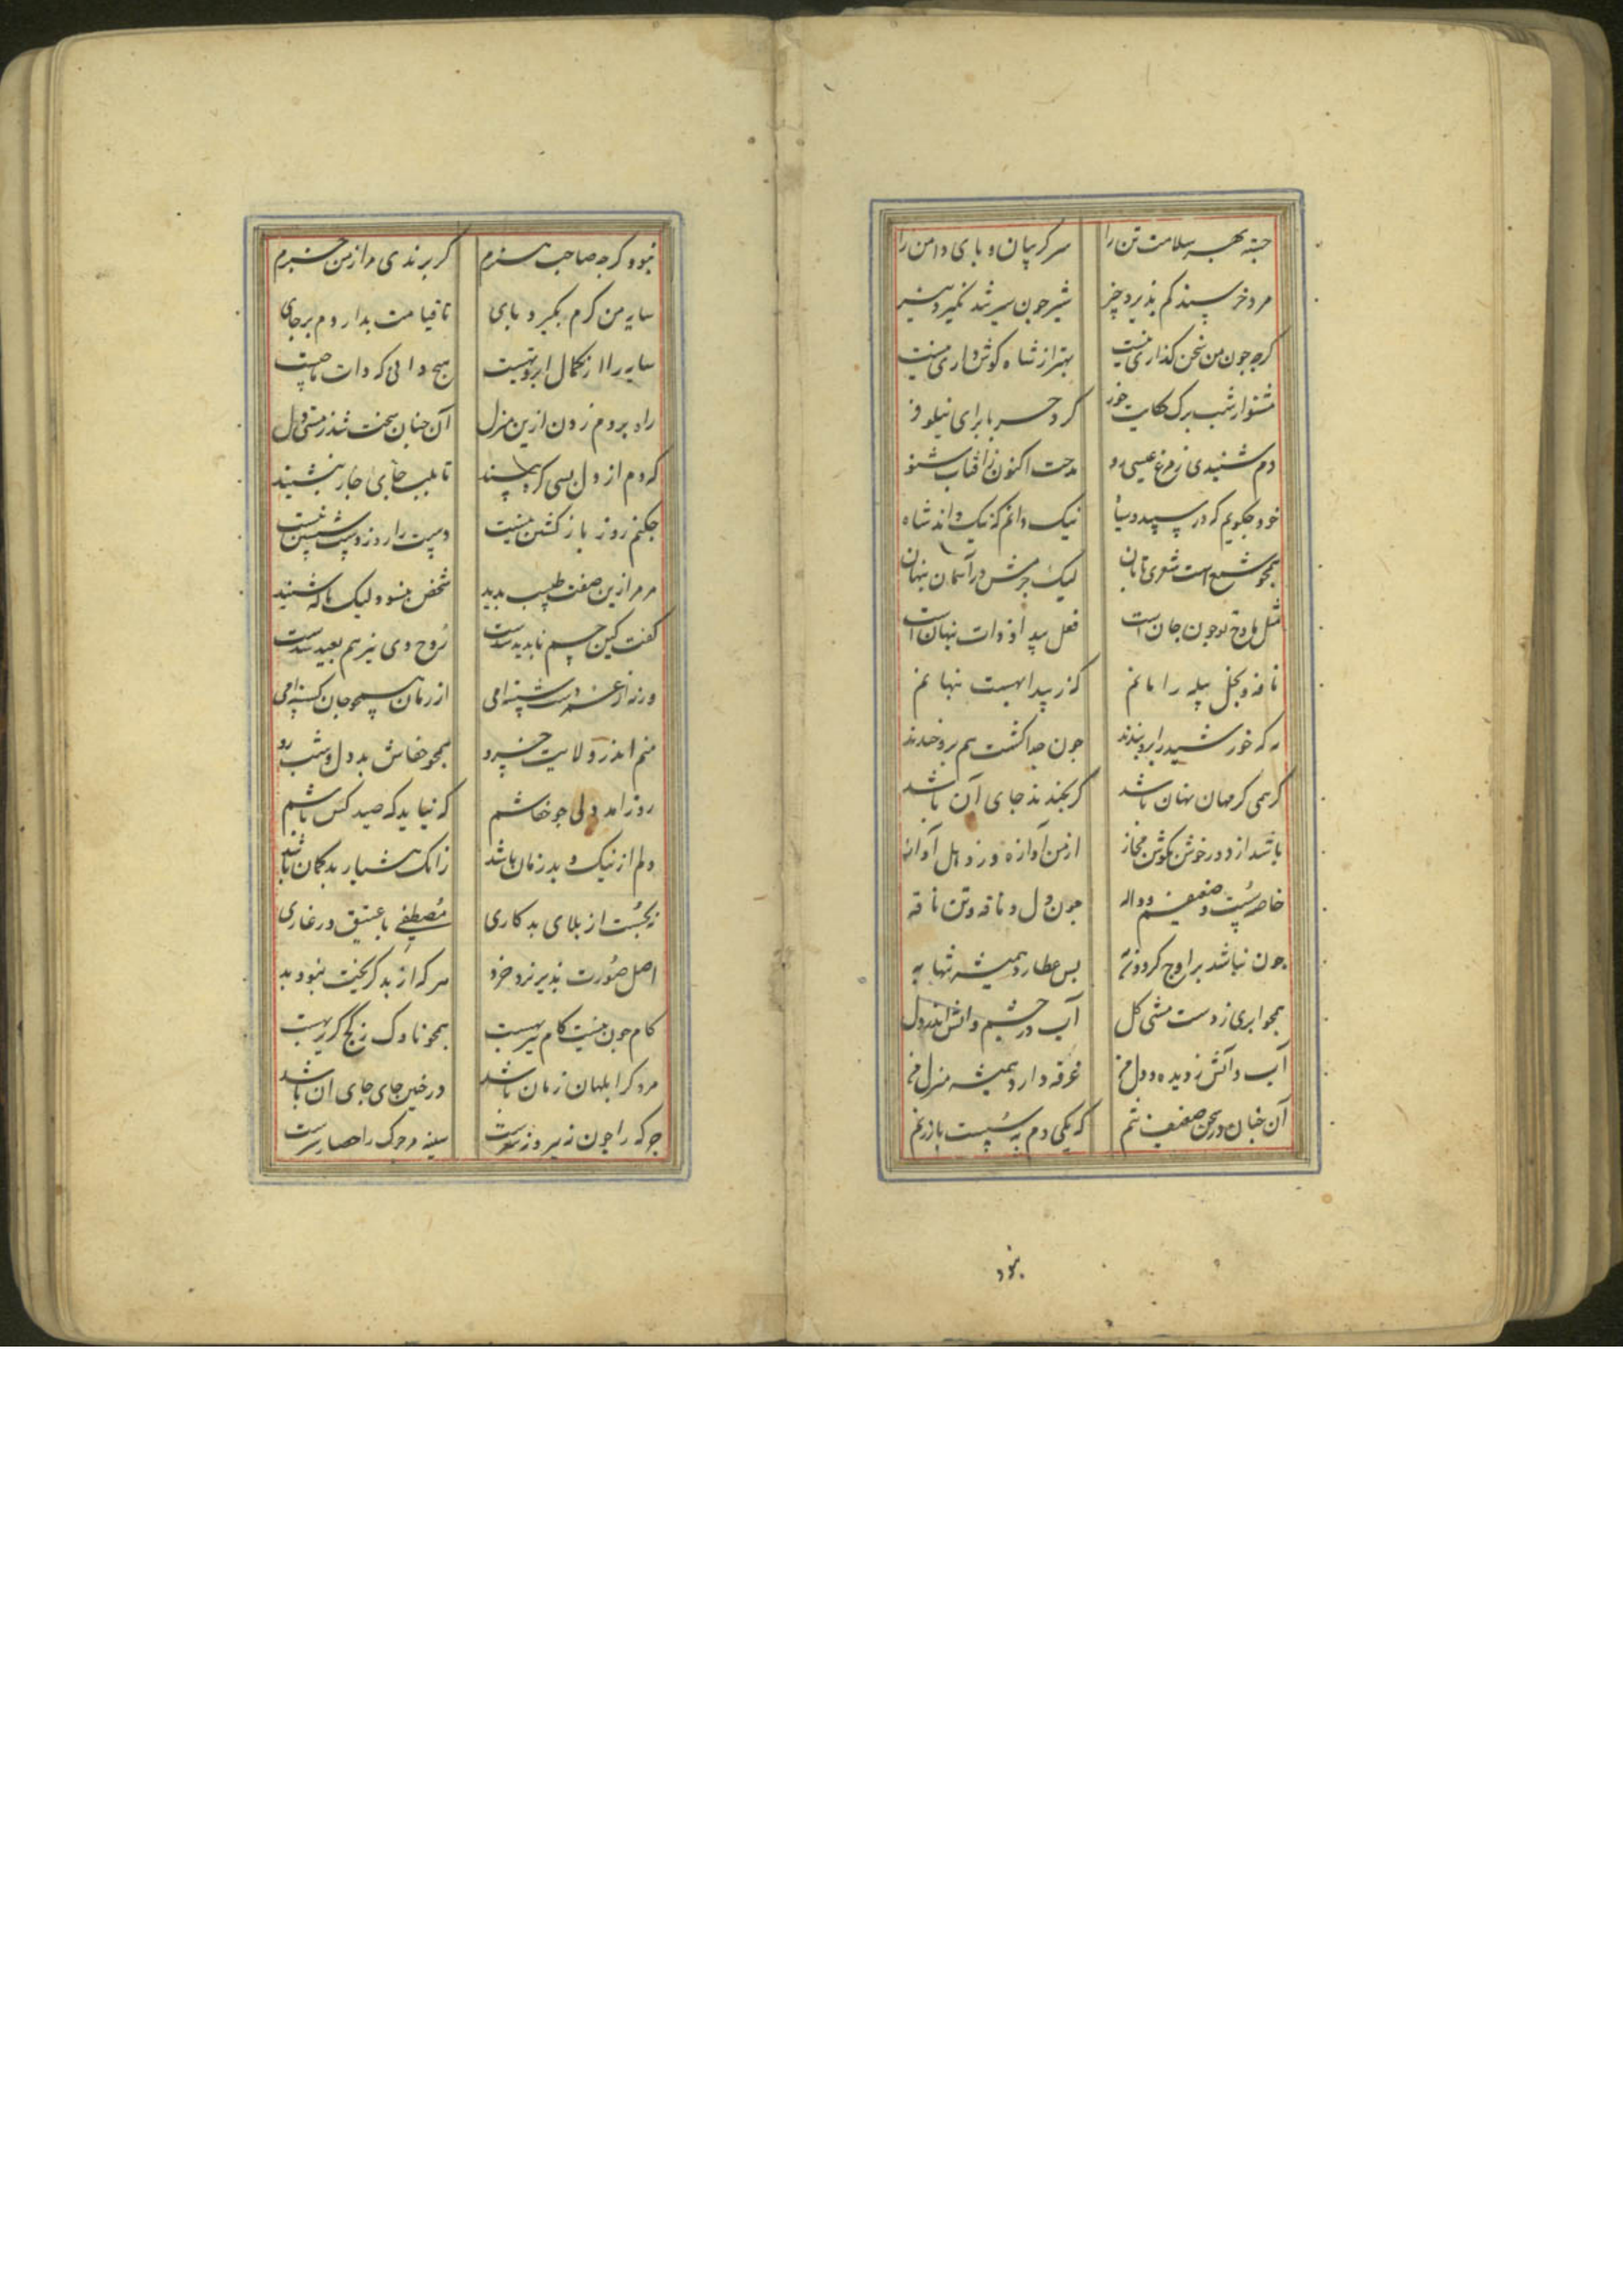 جسته بهر سلامت تن را سر کریبان و بای دامن را
مرد خرسند کم بذیرد چیز شیر جون سیر شد نکیرد نیز
کرجه جون من سخن کذاری نیست بهتر از شاه کوش داری نیست
مشنو از شب برک حکایت خور کرد حربا برای نیلوفر
دم شنیدی ز مرغ عیسی رو مدحت اکنون ز افتاب شنو
خود جکویم که در سپید و سیاه نیک دانم که نیک داند شاه
همجو شمع است شعری تابان لیک جرمش در آسمان بنهان
مثل روح جون جان است فعل پیدا و ذات بنهان است
نافه و نحل پیله را مانم که ز پیدا بهست بنهانم
نه که خورشید را ابر بندند جون جدا کشت هم برو خندند
کرمی کر مهان نهان باشد کر بخندند جای آن باشد
باشد از دور خوش بکوش مجاز از من آوازه و ز دهل آواز
خاصه سست و ضعیفم و واله جون دل و ناقه و تن ناقه
جون نباشد بر اوج کردون به بس عطارد همیشه تنها به
همجو ابری ز دست مشتی کل آب در چشم و اتش اندر دل
آب و آتش ز دیده و دل من غرقه دارد همیشه منزل من
آن جنان در سخن ضعیف تنم که یکی دم به سست باز زنم
بنود
بنود کرجه صاحب هنرم کر برندی مرا ز من خبرم
سایه من کرم بکیرد بای تا قیامت بداردم بر جای
سایه را از کمال ابر و تهیست هیج دانی که ذات ما جیست
راه بردم زدن ازین منزل آن جنان سخت شد ز مستی دل
که دم از دل بسی کره بیند تا بلب جای جای بنشیند
جکنم روز باز کشتن نیست دست را روز دست شستن نیست
مر مرا زین صفت طبیب بدید شخص بنسود لیک ناله شنید
کفت کین جسم نابدید شدست روح وی نیز هم بعید شدست
ور نه از غم شستهٔ امی از زمان همجو جان کستهٔ امی
منم اندر ولایت خسرو همجو خفاش بد دل و شب رو
روز امد ولی جو خفاشم که نیاید که صید کس باشم
دلم از نیک و بد رمان باشد زانک هشیار بدکمان باشد
نه بجست از بلای بد کاری مصطفی با عتیق در غاری
اصل صورت بذیر نزد خرد هر که از بد کریخت نبود بد
کام جون نیست کام بر بهست همجو ناوک ز کج کریز بهست
مرد کز ابلهان رمان باشد در خین جای جای ان باشد
جو که را جون ز بیر وز سوست سینه مر جوک را حصارست